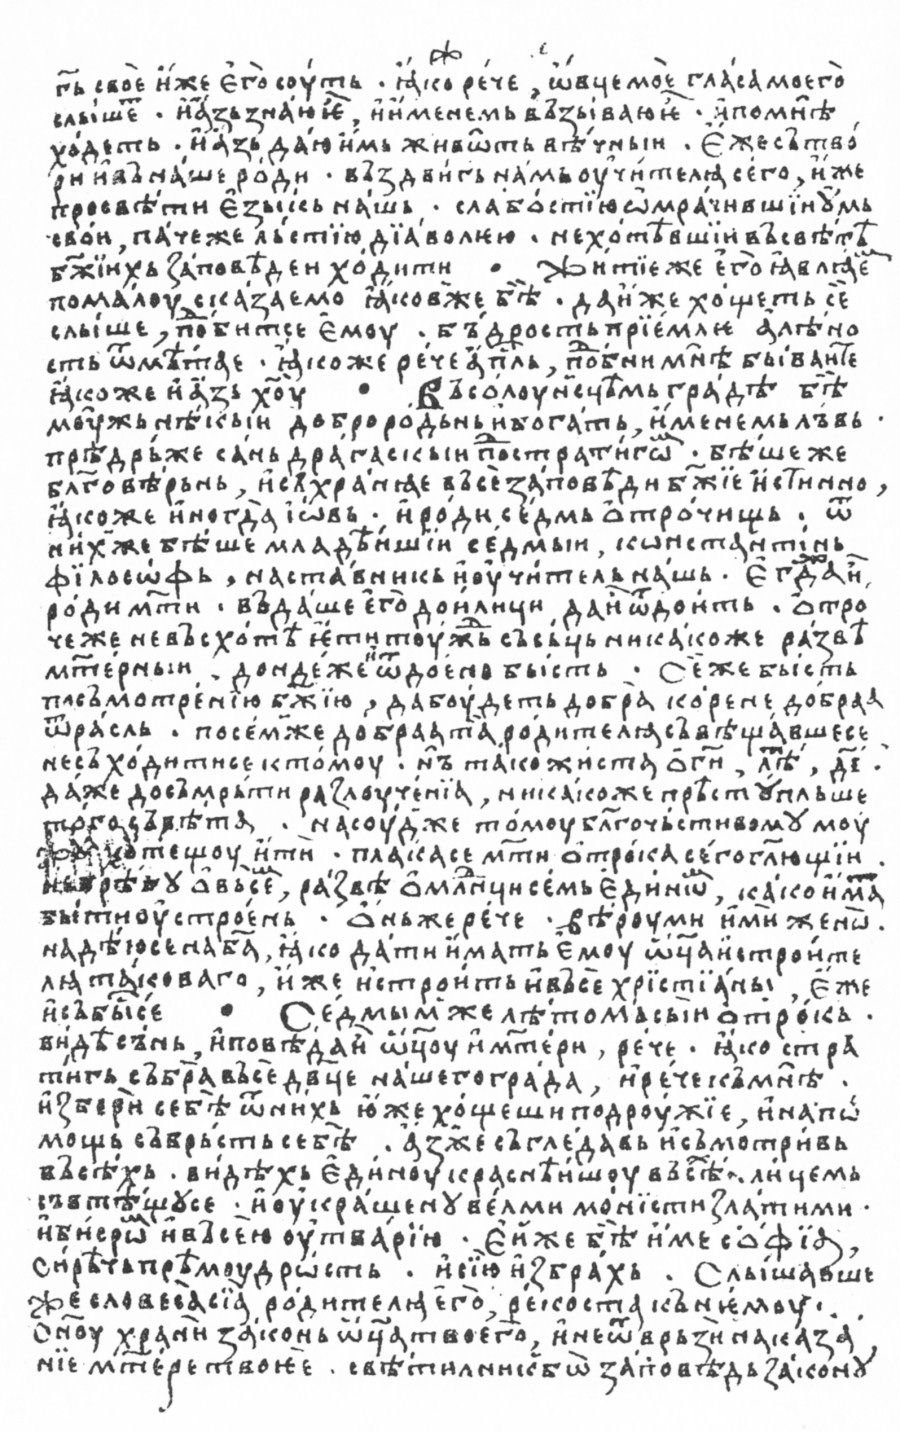 гл҃ь свое иже его соуть · ꙗко рече , ѡвце мое гласа моего
слышеть · и азь знаю ѥ , и именемь вьзываю ѥ · и по мнѣ
ходеть · и азь даю имь животь вѣчныи · Еже сьтво
ри и вь наше роди · вьздвигь намь оучителꙗ сего , иже
просвѣти езыкь нашь · слабостїю ѡмрачившїи оумь
свои , паче же льстїю дїаволѥю · не хотѣвшїи вь свѣтѣ
бж҃їихь заповѣдеи ходити • Житїе же его ꙗвлꙗѥть
помалоу сказаемо ꙗковже бѣ · да иже хощеть се
слыше , побитсе емоу · бьдрость прїемлѥ а лѣно
сть ѿмѣтае · ꙗкоже рече ап҃ль , побни мнѣ бываите
ꙗкоже и азь хоу • Вь солоунсцѣмь градѣ бѣ
моужь нѣкыи доброродьнь и богать , именемь львь ·
прѣдрьже сань драгаскыи по стратигѡ · бѣше же
бл҃говѣрьнь , и схранꙗе вьсе заповѣди бж҃їе истинно ,
ꙗкоже иногда їѡвь · и роди седмь отрочищь · ѿ
нихже бѣше младѣишїи седмыи , кѡнстантїнь
фїлосѡфь , наставникь и оучитель нашь · Егда и
роди мт҃и · вьдаше его доилици да и ѿдоить · отро
че же не вьсхотѣ ѥти тоужь сьсьць никакоже развѣ
мт҃ерныи · дондеже и ѿдоено бысть · Се же бысть
по сьмотренїю бж҃їю , да боудеть добра корене добраа
ѿрасль · по семже добраа та родителꙗ сьвѣщавшесе
не сьходитисе к томоу · нь тако живста о ги , лѣ , дї ·
даже до сьмрьти разлоученїа , никакоже прѣстꙋпльше
того сьвѣта · на соудже томоу бл҃гочьстивомꙋ моу
хотещоу ити · плакасе мт҃и отрока сего гл҃ющїи ·
не брѣгꙋ о вьсе , развѣ о младнци семь единѡ , како има
быти оустроень · Онь же рече · вѣроуи ми жено ·
надѣюсе на ба , ꙗко дати имать емоу ѡц҃а и строите
лꙗ таковаго , иже и строить и вьсе хрїстїаны , Еже
и сьбысе • Седмыимже лѣтомь сыи отрокь ·
видѣ сьнь , и повѣда и ѡц҃оу и мт҃ери , рече · ꙗко стра
тигь сьбра вьсе двце нашего града , и рече кь мнѣ ·
избери себѣ ѿ нихь юже хощеши подроужїе , и на по
мощь сьврьсть себѣ · Азже сьгледавь и сьмотривь
вьсѣхь · видѣхь единоу краснѣишоу вьсѣ · лицемь
свтѣщꙋсе · и оукрашенꙋ велми монїсти златими ·
и бисерѡ и вьсею оутварїю · Еиже бѣ име сѡфїа ,
сирѣчь прѣмоудрость · и сїю избрахь · Слышавше
же словеса сїа родителꙗ его , рекоста кь нѥмоу ·
сноу храни законь ѡц҃а твоего , и не ѿврьзи наказа
нїе мт҃ере твоѥе · свѣтилникбо заповѣдь законꙋ